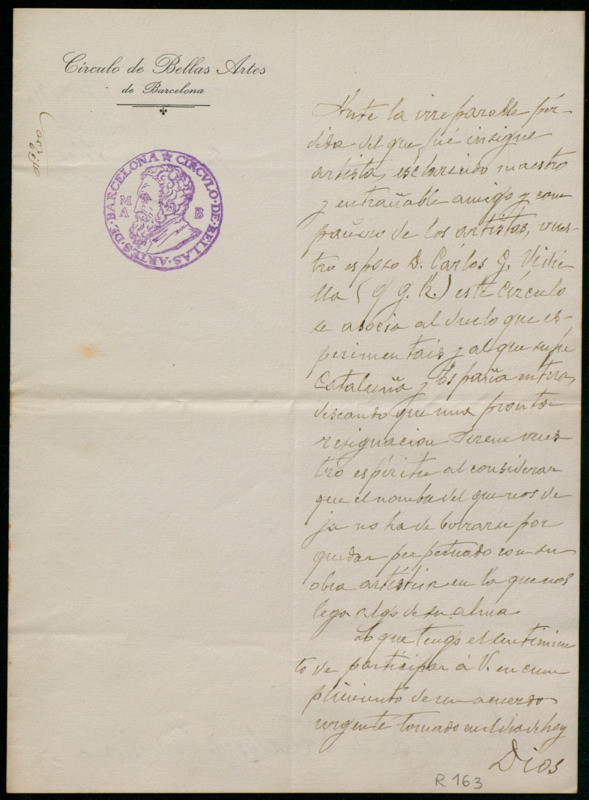 Círculo de Bellas Artes
de Barcelona
CIRCVLO·DE·BELLAS·ARTES·DE·BARCELONA
M B
A
Ante la irreparable pér-
dida del que fué insigne
artista, esclarecido maestro
y entrañable amigo y com
pañero de los artistas, vues-
tro esposo D. Cárlos G. Vidie
lla (q g. h.) este círculo
se asocia al duelo que es-
perimentais y al que sufre
Cataluña y España entera,
deseando que una pronta
resignacion serene vues
tro espíritu al considerar
que el nombre del que nos de
ja no ha de borrarse por
quedar perpetuado con su
obra artística en la que nos
lega algo de su alma.
Lo que tengo el sentimien
to de participar á V. en cum
plimiento de un acuerdo
urgente tomado en el dia de hoy
Dios
R 163